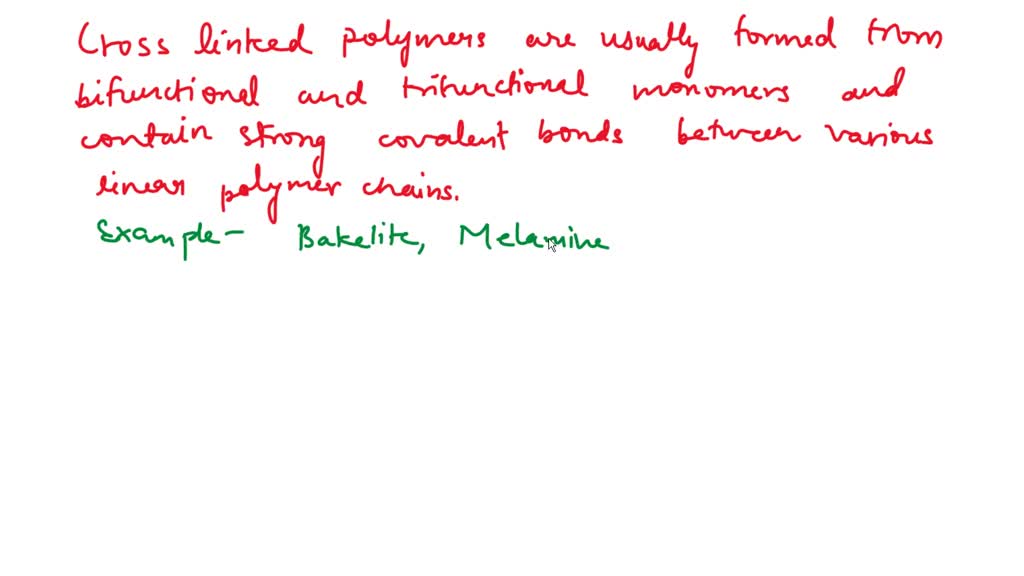 Cross linked polymers are usually formed from
bifunctional and trifunctional monomers and
contain strong covalent bonds between various
linear polymer chains.
Example- Bakelite, Melamine